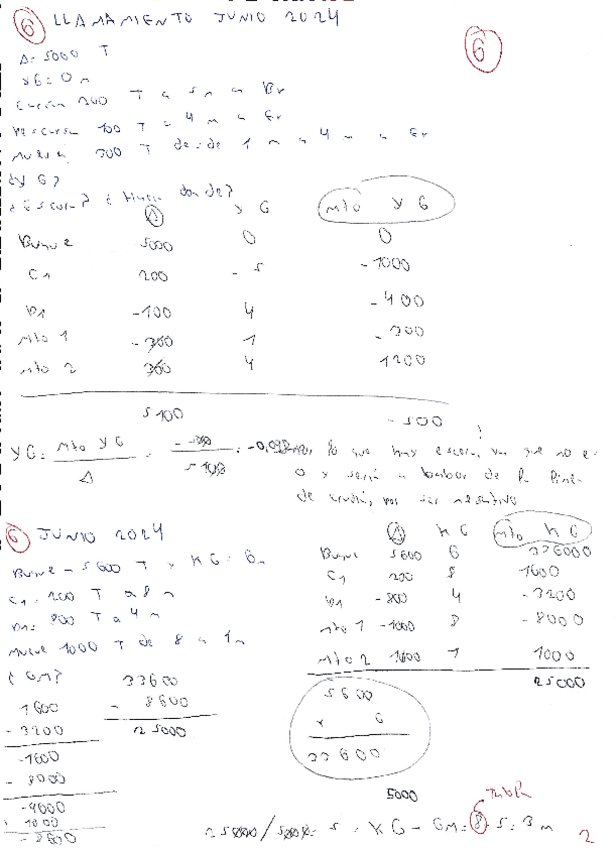 6 LLAMAMIENTO JUNIO 2024
6
Δ= 5000 T
YG= 0 m
Cargan 200 T a 5 m a Br
Descarga 100 T a 4 m a Er
Mueven 300 T desde 1 m a 4 m a Er
¿YG?
¿Escora? ¿Hacia donde?
Δ YG mto YG
Buque 5000 0 0
C1 200 -5 -1000
D1 -100 4 -400
mto 1 -300 1 -300
mto 2 300 4 1200
5100 -500
YG= mto YG / Δ = -500 / 5100 = -0,098 m, lo que hay escora, ya que no es
0 y sería a babor de la línea
de crujía, por ser negativo
6 JUNIO 2024
Buque = 5600 T y KG= 6m
C1= 200 T a 8 m
D1= 800 T a 4 m
Mueve 1000 T de 8 a 1m
¿GM?
Δ KG mto KG
Buque 5600 6 336000
C1 200 8 1600
D1 -800 4 -3200
mto 1 -1000 8 -8000
mto 2 1000 1 1000
25000
33600
- 8600
25000
1600
- 3200
-1600
- 8000
-9600
+ 1000
- 8600
5600
x 6
33600
5000
25000/5000= 5 = KG - GM= 8 - 5= 3 m
2